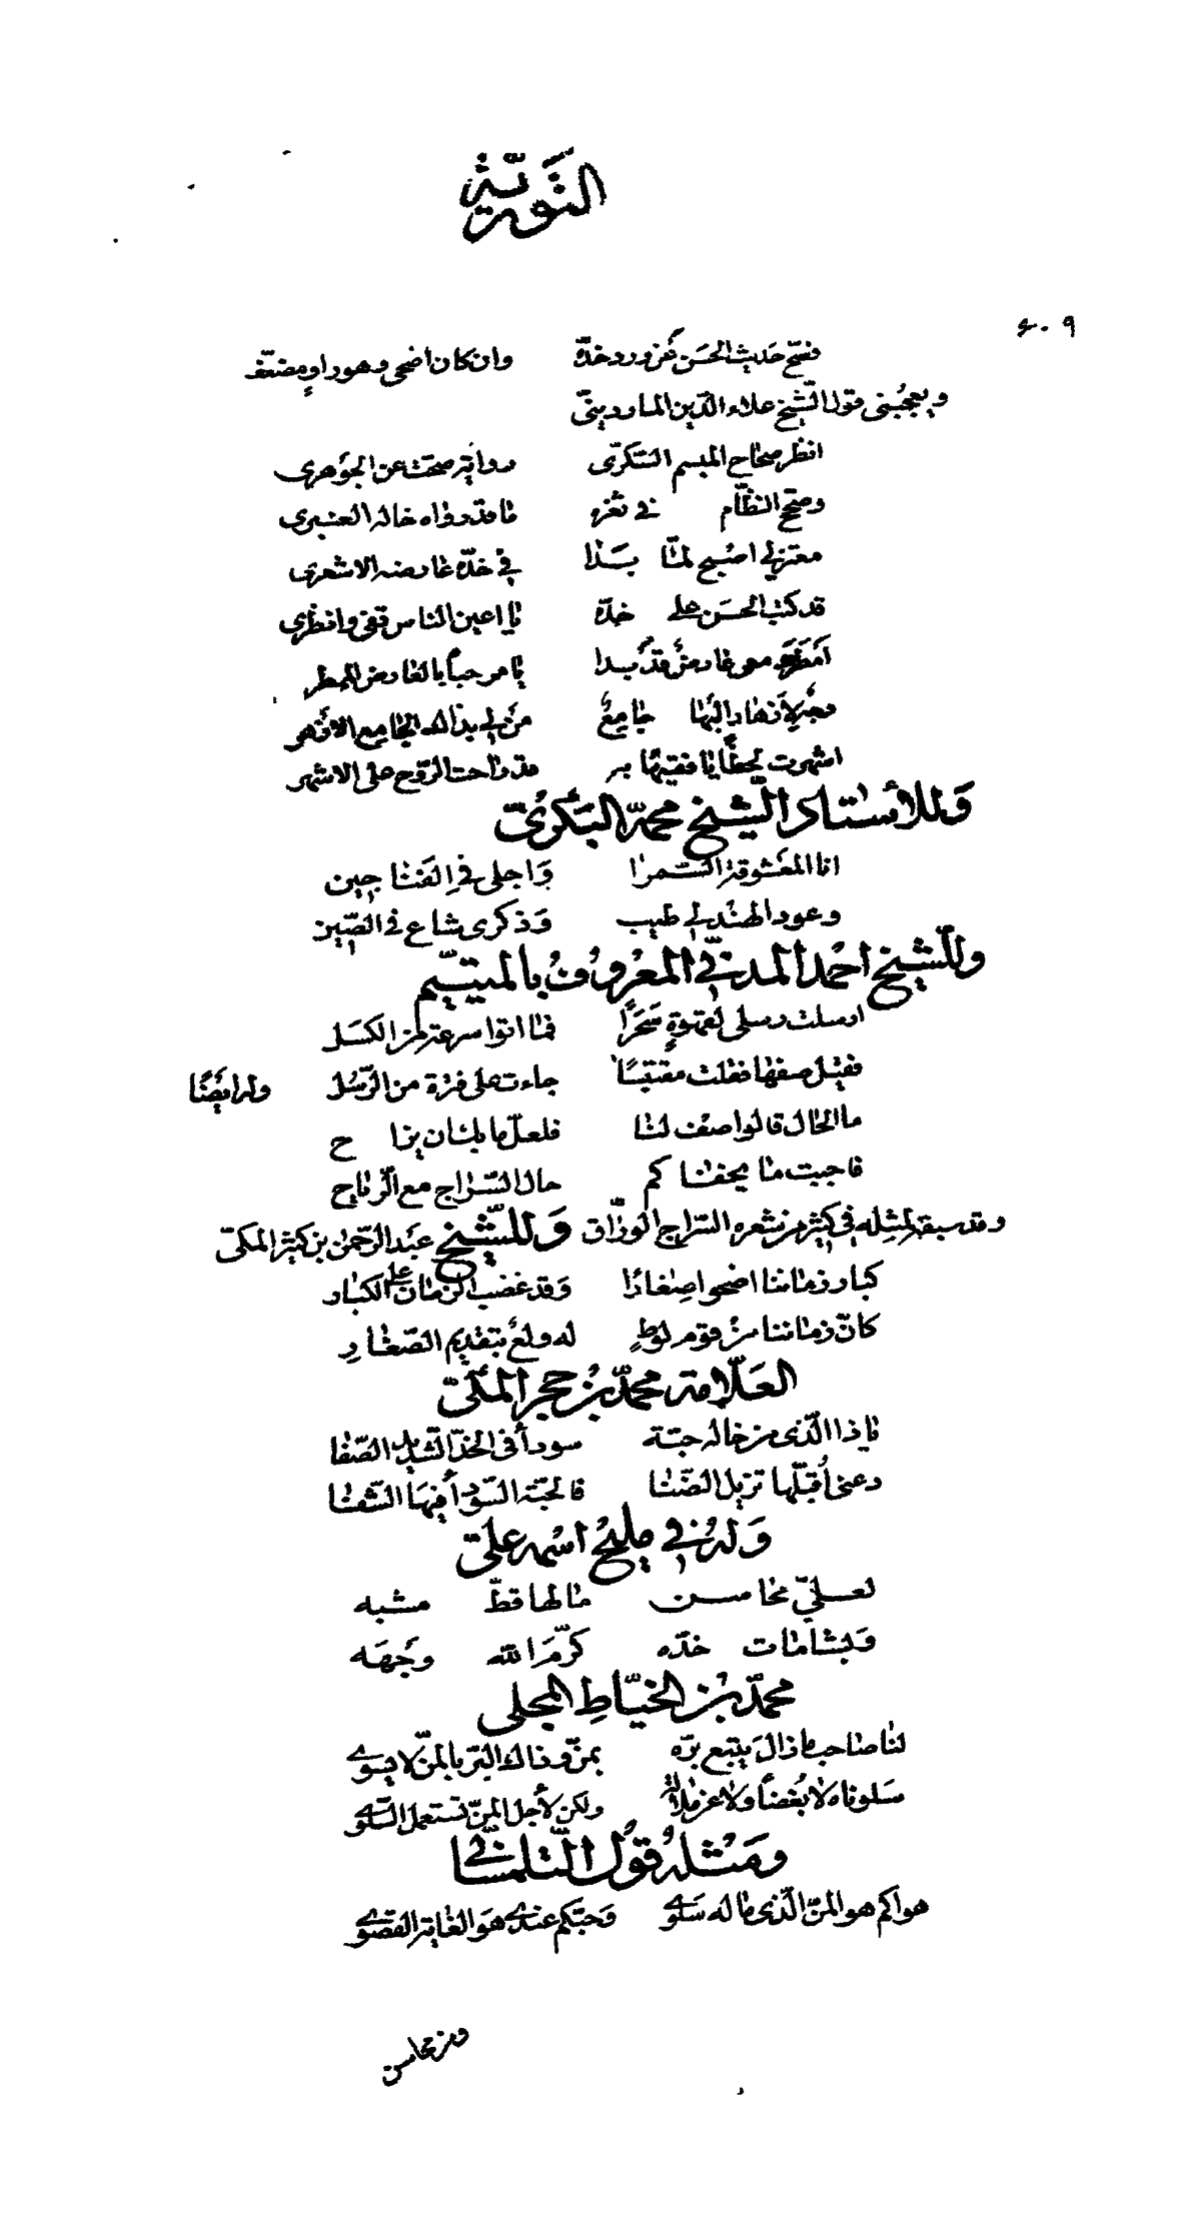 التَّورية
٤٠٩
فصحّ حديث الحسن عن ورد خدّه وان كان اضحى وهو راوٍ مضعّف
ويعجبنى قول الشّيخ علاء الدّين الماردينىّ
انظر صحاح المبسم السّكرّى رواية صحت عن الجوهرى
وصحّح النظّام فى ثغره ما قد رواه خاله العنبرى
معتزلى اصبح لمّا بدا فى خدّه عارضه الاشعرى
قد كتب الحسن على خدّه يا اعين الناس قفى وانظرى
دمعى عارض قد بدا يا مرحباً بالعارض الممطر
جامعٌ من لى بذاك الجامع الازهر
اشهرت لحظًا يا فقيهًا به قد راحت الرّوح على الاشهر
وَللأستاذ الشّيخ محمّد البَكرىّ
انا المعشوقة السّمرا وَاجلى فى الفناجين
وعود الهند لى طيب وَذكرى شاع فى الصّين
وللشّيخ احمد المدنىّ المعروف بالمتيّم
ارسلت رسلى لقهوةٍ سَحَرًا فما اتوا سرعة من الكَسَل
فقيل صفها فقلت مقتبسًا جاءت على فترة من الرّسُل وله ايضًا
ما الحال قالوا صف لنا فلعلّ ما بك ان يزاح
فاجبت ما يخفاكم حال السّراج مع الرّياح
وقد سبق لمثله فى كثير من شعره السّراج الورّاق وَللشّيخ عبد الرّحمن بن كثير المكىّ
كبار زماننا اضحوا صِغارًا وَقد غضب الزّمان على الكبار
كانّ زماننا من قوم لوطٍ له ولعٌ بتقديم الصّغارِ
العَلّامة محمّد بن حجر المكىّ
يا ذا الّذى من خاله حبّة سودآ فى الخدّ الصّفا
دعنى اُقبّلها تزيل الضّنا فالحبّة السّودآ فيها الشّفا
وَله فى مليح اسمه على
لعلىّ محاسن ما لها قطّ مشبه
وَبشامات خدّه كرّم الله وجهه
محمّد بن الخيّاط المحلى
لنا صاحب ما زال يتبع برّه بمنّ وذاك البرّ بالمنّ لا يسوى
سلوناه لا بُغضاً ولا عن ملالة ولكن لأجل المنّ تستعمل السّلوى
ومثله قول التّلمسانى
هواكم هو المنّ الّذى ما له سَلوى وَحبّكم عندى هو الغاية القصوى
ومن محاسن